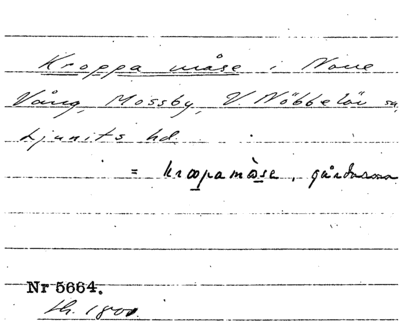 Kroppa måse i Norre
Vång, Mossby, V. Nöbbelöv sn,
Ljunits hd.
= kropamose, gårdsnamn
Nr 5664.
th. 1800.